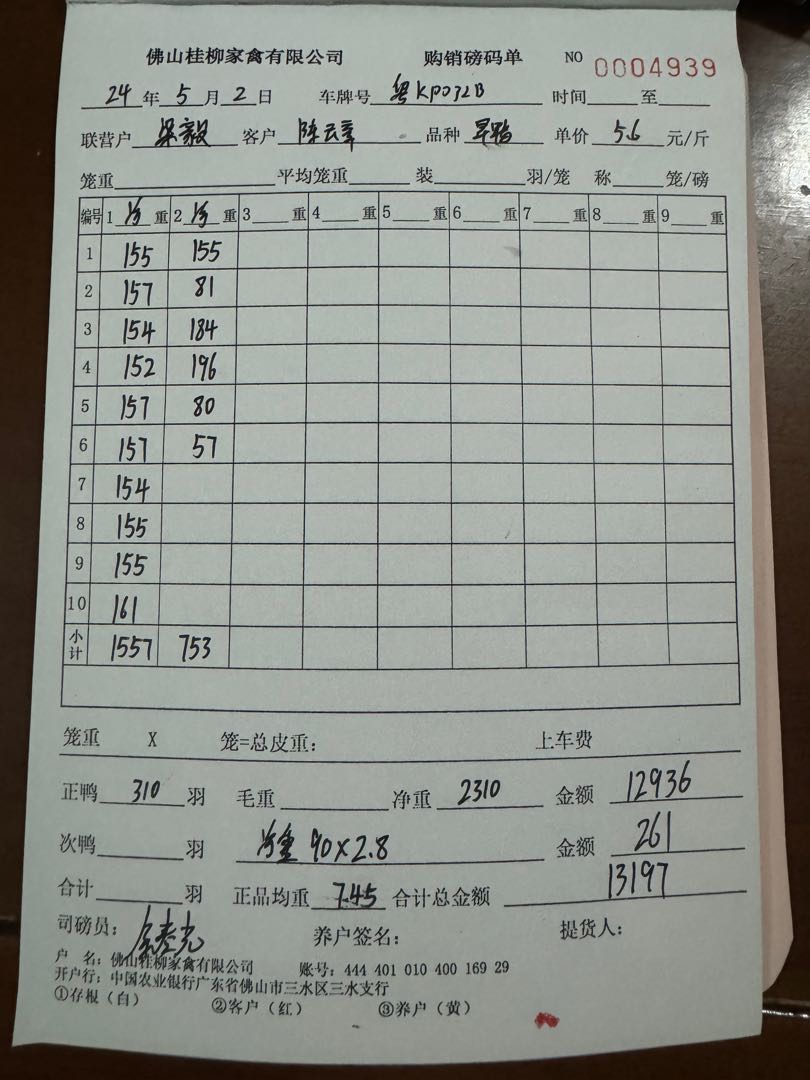 佛山桂柳家禽有限公司 购销磅码单 NO 0004939
24 年 5 月 2 日 车牌号 粤KP032B 时间 至
联营户 梁毅 客户 陈云章 品种 旱鸭 单价 5.6 元/斤
笼重 平均笼重 装 羽/笼 称 笼/磅
编号 1 净 重 2 净 重 3 重 4 重 5 重 6 重 7 重 8 重 9 重
1 155 155
2 157 81
3 154 184
4 152 196
5 157 80
6 157 57
7 154
8 155
9 155
10 161
小计 1557 753
笼重 X 笼=总皮重: 上车费
正鸭 310 羽 毛重 净重 2310 金额 12936
次鸭 羽 净重 90×2.8 金额 261
合计 羽 正品均重 7.45 合计总金额 13197
司磅员: 养户签名: 提货人:
户 名: 佛山桂柳家禽有限公司 账号: 444 401 010 400 169 29
开户行: 中国农业银行广东省佛山市三水区三水支行
①存根(白) ②客户(红) ③养户(黄)